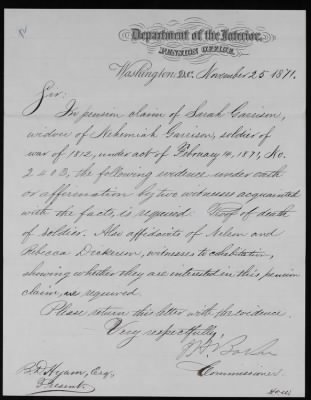 Department of the Interior,
PENSION OFFICE,
Washington, D.C. November 25 1871.
Sir:
In pension claim of Sarah Garrison,
widow of Nehemiah Garrison, soldier of
war of 1812, under act of February 14, 1871, No.
2403, the following evidence under oath
or affirmation by two witnesses acquainted
with the facts, is required. Proof of death
of soldier. Also affidavits of and
Rebecca Dickerson, witnesses to cohabitation,
showing whether they are interested in this pension
claim, are required.
Please return this letter with the evidence.
Very respectfully,
Commissioner.
B.D. Hyam, Esq,
Present.